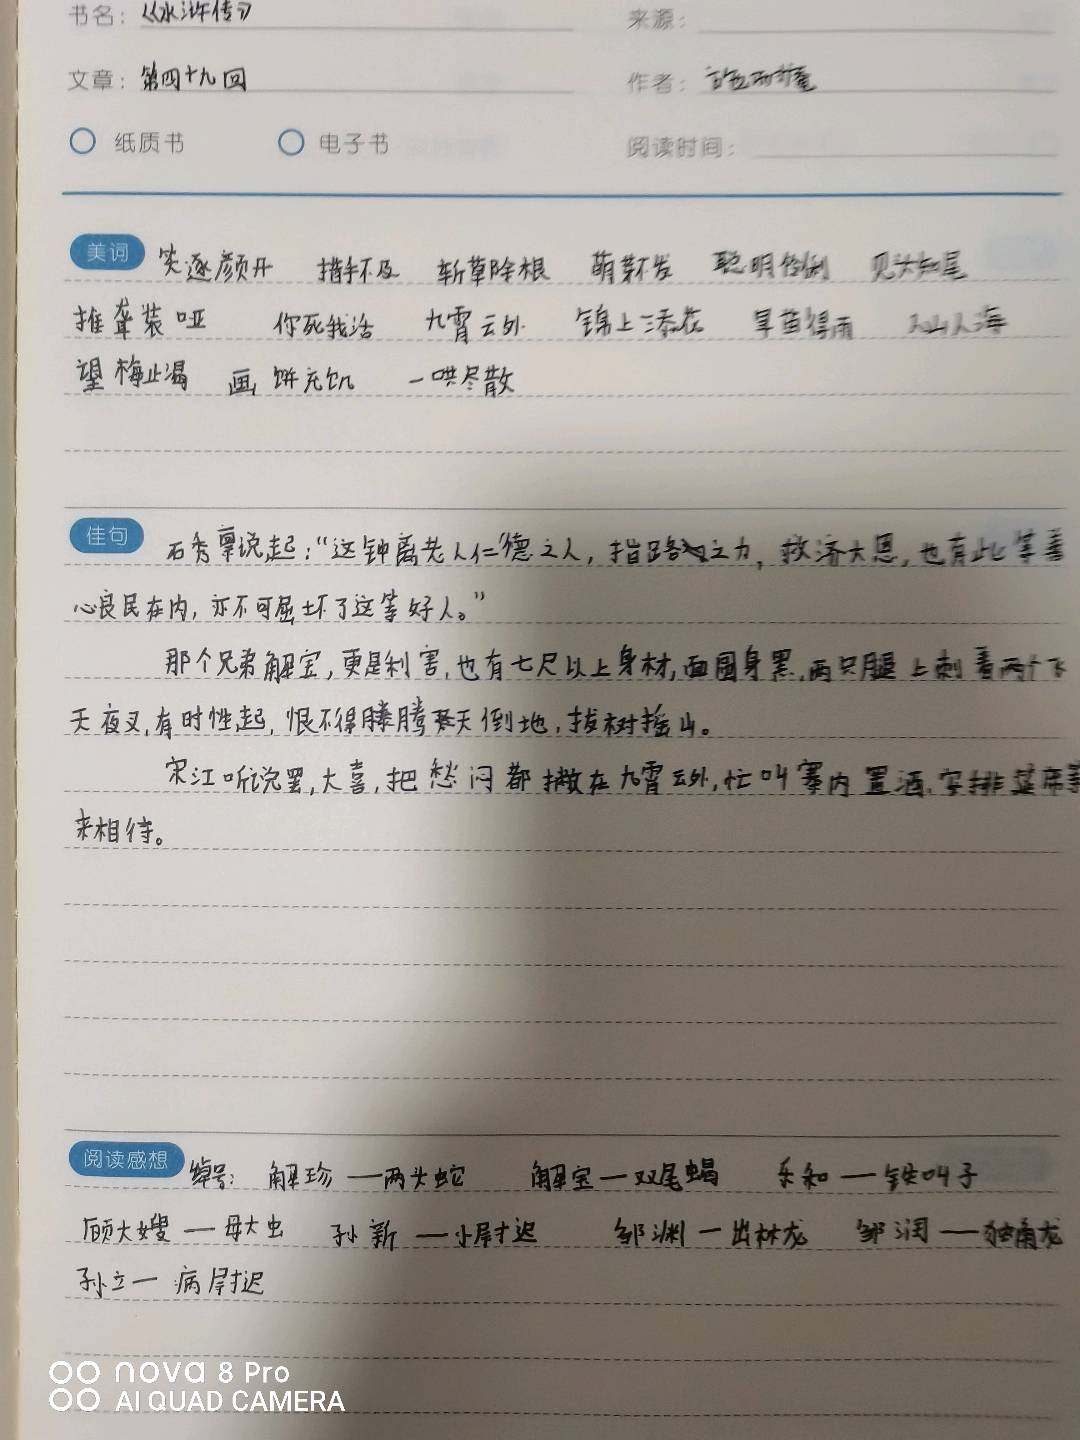 书名：《水浒传》 来源：
文章：第四十九回 作者：施耐庵
纸质书 电子书 阅读时间：
美词 笑逐颜开 措手不及 斩草除根 萌芽不发 聪明伶俐 见头知尾
推聋装哑 你死我活 九霄云外 锦上添花 旱苗得雨 人山人海
望梅止渴 画饼充饥 一哄尽散
佳句 石秀禀说起：“这钟离老人仁德之人，指路之力，救济大恩，也有此等善
心良民在内，亦不可屈坏了这等好人。”
那个兄弟解宝，更是利害，也有七尺以上身材，面圆身黑，两只腿上刺着两个飞
天夜叉，有时性起，恨不得腾天倒地，拔树摇山。
宋江听说罢，大喜，把愁闷都撇在九霄云外，忙叫寨内置酒，安排筵席等
来相待。
阅读感想 绰号： 解珍一两头蛇 解宝一双尾蝎 乐和一铁叫子
顾大嫂一母大虫 孙新一小尉迟 邹渊一出林龙 邹润一独角龙
孙立一病尉迟
nova 8 Pro
AI QUAD CAMERA